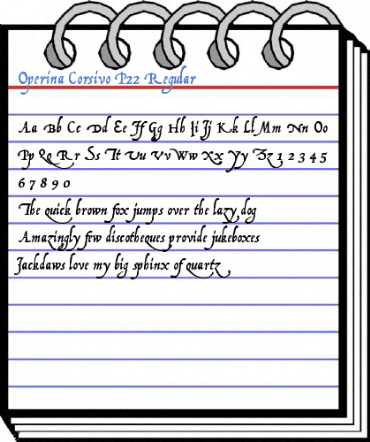 Operina Corsivo P22 Regular
Aa Bb Cc Dd Ee Ff Gg Hh Ii Jj Kk Ll Mm Nn Oo
Pp Qq Rr Ss Tt Uu Vv Ww Xx Yy Zz 1 2 3 4 5
6 7 8 9 0
The quick brown fox jumps over the lazy dog
Amazingly few discotheques provide jukeboxes
Jackdaws love my big sphinx of quartz